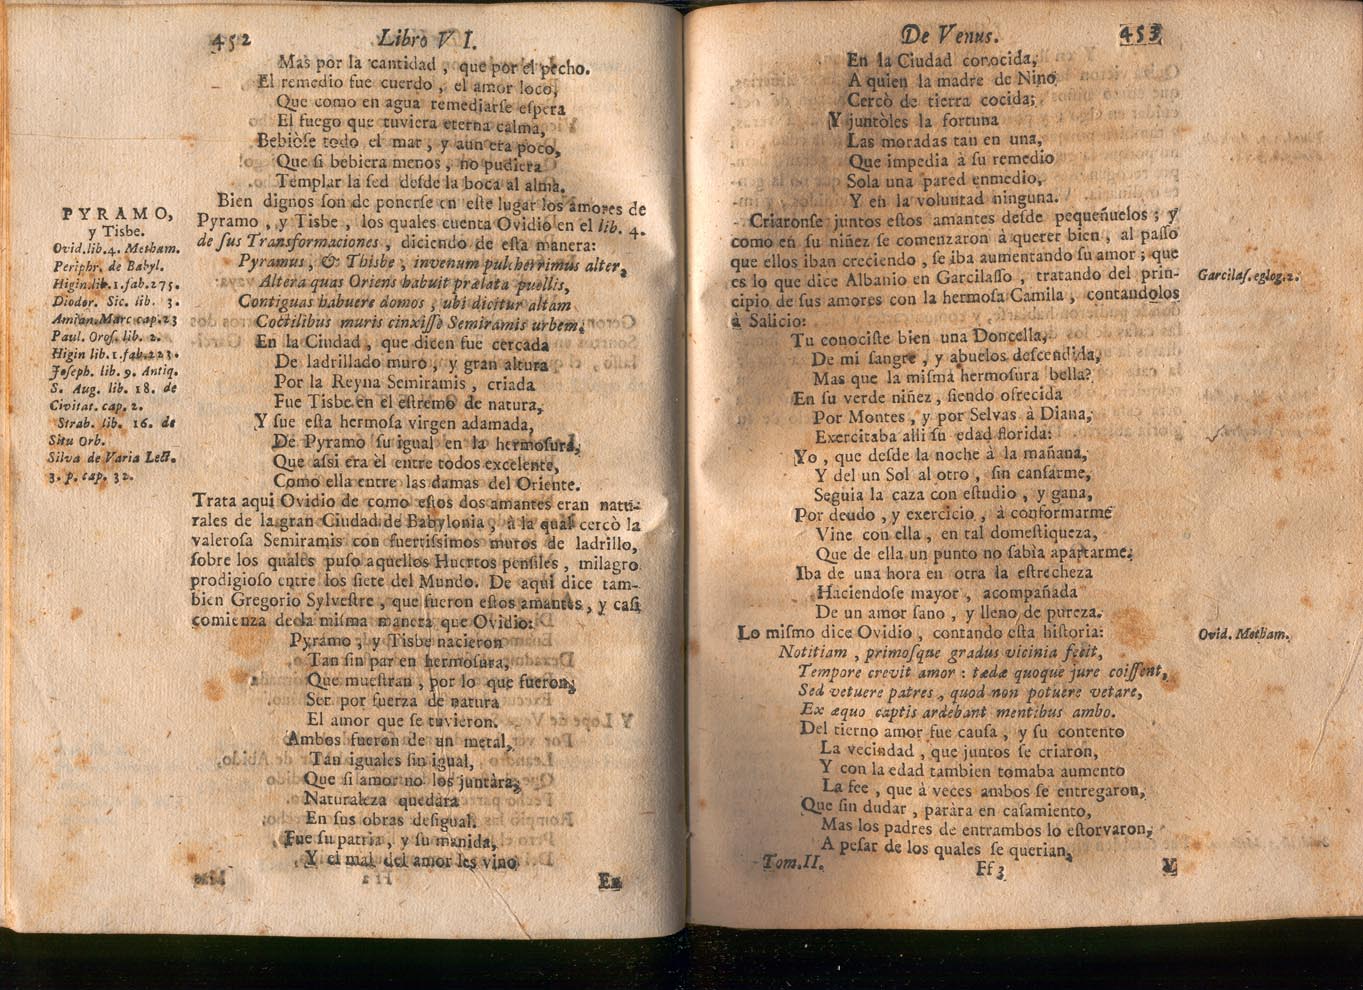 452 Libro VI.
Mas por la cantidad, que por el pecho.
El remedio fue cuerdo, el amor loco,
Que como en agua remediarſe eſpera
El fuego que tuviera eterna calma,
Bebiòſe todo el mar, y aun era poco,
Que ſi bebiera menos, no pudiera
Templar la ſed deſde la boca al alma.
Bien dignos ſon de ponerſe en eſte lugar los amores de
Pyramo, y Tisbe, los quales cuenta Ovidio en el lib. 4.
de ſus Transformaciones, diciendo de eſta manera:
Pyramus, & Thisbe, invenum pulcherrimus alter,
Altera quas Oriens habuit prælata puellis,
Contiguas habuere domos, ubi dicitur altam
Coctilibus muris cinxiſſe Semiramis urbem.
En la Ciudad, que dicen fue cercada
De ladrillado muro, y gran altura
Por la Reyna Semiramis, criada
Fue Tisbe en el eſtremo de natura,
Y fue eſta hermoſa virgen adamada,
De Pyramo ſu igual en la hermoſura,
Que aſsi era èl entre todos excelente,
Como ella entre las damas del Oriente.
Trata aqui Ovidio de como eſtos dos amantes eran natu-
rales de la gran Ciudad de Babylonia, à la qual cercò la
valeroſa Semiramis con fuertiſsimos muros de ladrillo,
ſobre los quales puſo aquellos Huertos penſiles, milagro
prodigioſo entre los ſiete del Mundo. De aqui dice tam-
bien Gregorio Sylveſtre, que fueron eſtos amantes, y caſi
comienza de la miſma manera que Ovidio:
Pyramo, y Tisbe nacieron
Tan ſin par en hermoſura,
Que mueſtran, por lo que fueron,
Ser por fuerza de natura
El amor que ſe tuvieron.
Ambos fueron de un metal,
Tan iguales ſin igual,
Que ſi amor no los juntàra,
Naturaleza quedàra
En ſus obras deſigual.
Fue ſu patria, y ſu manida,
Y el mal del amor les vino
En
PYRAMO,
y Tisbe.
Ovid. lib. 4. Metham.
Periphr. de Babyl.
Higin. lib. 1. fab. 275.
Diodor. Sic. lib. 3.
Amian. Marc cap. 23
Paul. Oroſ. lib. 2.
Higin lib. 1. fab. 223.
Joſeph. lib. 9. Antiq.
S. Aug. lib. 18. de
Civitat. cap. 2.
Strab. lib. 16. de
Situ Orb.
Silva de Varia Lect.
3. p. cap. 32.
De Venus. 453
En la Ciudad conocida,
A quien la madre de Nino
Cercò de tierra cocida;
Y juntòles la fortuna
Las moradas tan en una,
Que impedia à ſu remedio
Sola una pared enmedio,
Y en la voluntad ninguna.
Criaronſe juntos eſtos amantes deſde pequeñuelos; y
como en ſu niñez ſe comenzaron à querer bien, al paſſo
que ellos iban creciendo, ſe iba aumentando ſu amor; que
es lo que dice Albanio en Garcilaſſo, tratando del prin-
cipio de ſus amores con la hermoſa Camila, contandolos
à Salicio:
Tu conociſte bien una Doncella,
De mi ſangre, y abuelos deſcendida,
Mas que la miſma hermoſura bella?
En ſu verde niñez, ſiendo ofrecida
Por Montes, y por Selvas à Diana,
Exercitaba alli ſu edad florida:
Yo, que deſde la noche à la mañana,
Y del un Sol al otro, ſin canſarme,
Seguia la caza con eſtudio, y gana,
Por deudo, y exercicio, à conformarme
Vine con ella, en tal domeſtiqueza,
Que de ella un punto no ſabìa apartarme;
Iba de una hora en otra la eſtrecheza
Haciendoſe mayor, acompañada
De un amor ſano, y lleno de pureza.
Lo miſmo dice Ovidio, contando eſta hiſtoria:
Notitiam, primoſque gradus vicinia fecit,
Tempore crevit amor: tædæ quoque jure coiſſent,
Sed vetuere patres, quod non potuere vetare,
Ex æquo captis ardebant mentibus ambo.
Del tierno amor fue cauſa, y ſu contento
La vecindad, que juntos ſe criaron,
Y con la edad tambien tomaba aumento
La fee, que à veces ambos ſe entregaron,
Que ſin dudar, paràra en caſamiento,
Mas los padres de entrambos lo eſtorvaron,
A peſar de los quales ſe querian,
Tom. II. Ff 3 Y
Garcilaſ. eglog. 2.
Ovid. Metham.